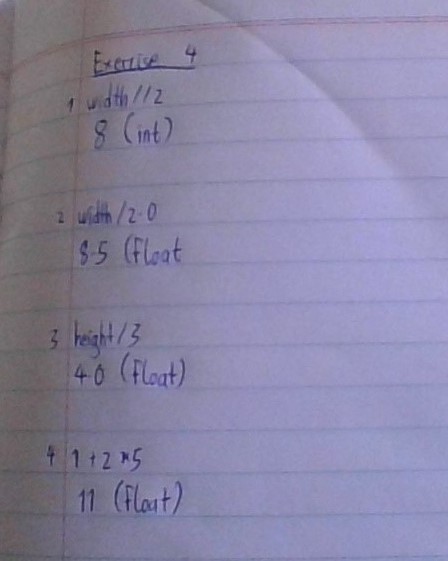 Exercise 4
1 width//2
8 (int)
2 width/2.0
8.5 (float
3 height/3
4.0 (float)
4 1+2*5
11 (float)